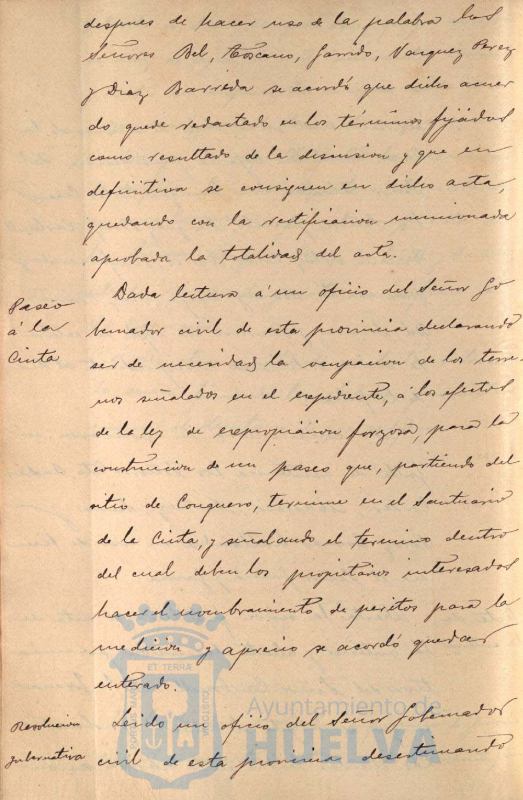 despues de hacer uso de la palabra los
Señores Bel, Toscano, Garrido, Vazquez Perez
y Diaz Barreda se acordó que dicho acuer
do quede redactado en los términos fijados
como resultado de la disinsion y que en
definitiva se consignen en dicho acta,
quedando con la rectificacion mencionada
aprobada la totalidad del acta.
Paseo
á la
Cinta
Dada lectura á un oficio del Señor Go
bernador civil de esta provincia declarando
ser de necesidad la ocupacion de los terre-
nos señalados en el expediente, á los efectos
de la ley de expropiacion forzosa, para la
construccion de un paseo que, partiendo del
sitio de Conquero, termine en el Santuario
de la Cinta, y señalando el termino dentro
del cual deben los propietarios interesados
hacer el nombramiento de peritos para la
medicion y aprecio se acordó quedar
enterado.
Resolucion
gubernativa
Leido un oficio del Señor Gobernador
civil de esta provincia desestimando
ET TERRÆ
Ayuntamiento de
HUELVA